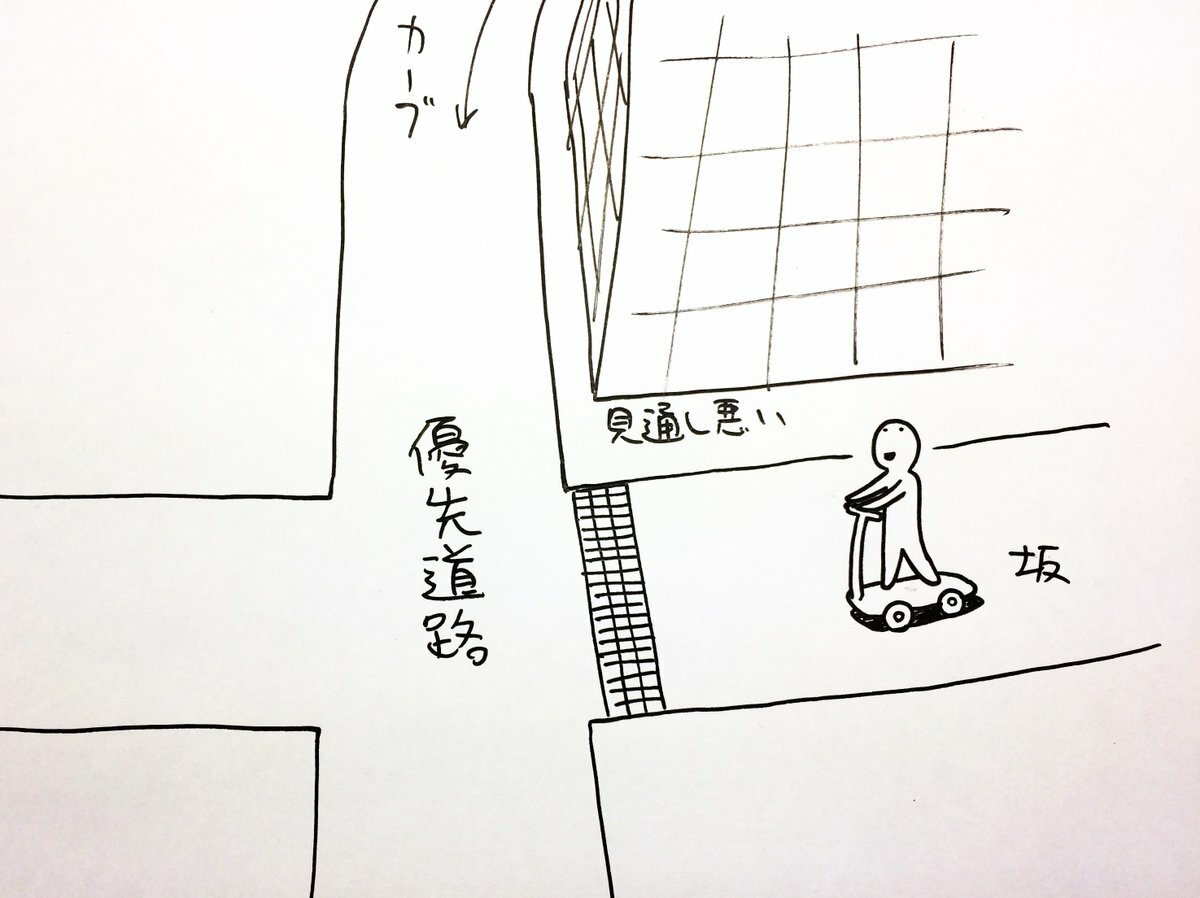 カーブ
見通し悪い
優先道路。
坂